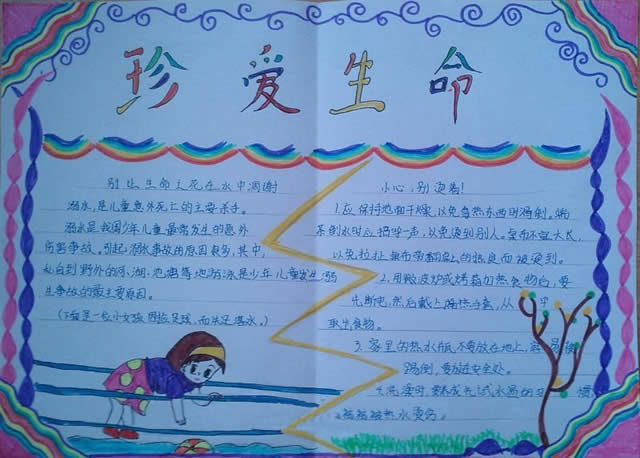 珍爱生命
别让生命之花在水中凋谢
溺水,是儿童意外死亡的主要杀手。
溺水是我国少年儿童最常发生的意外
伤害事故。引起溺水事故的原因很多,其中,
私自到野外的河、湖、池塘等地游泳是少年儿童发生溺
生事故的最主要原因。
(下面是一位小女孩因捡足球,而失足溺水。)
小心,别烫着!
1.应保持地面干燥,以免拿热东西时滑倒。端
开水时应招呼一声,以免烫到别人。桌布不宜太大,
以免拉扯桌布弄翻桌上的热食而被烫到。
2.用微波炉或烤箱加热食物后,要
先断电,然后戴上隔热手套,从中
取出食物。
3.家里的热水瓶不要放在地上,容易被
踢倒,要放在安全处。
4.洗澡时,要养成先试水温的习惯
被热水烫伤。